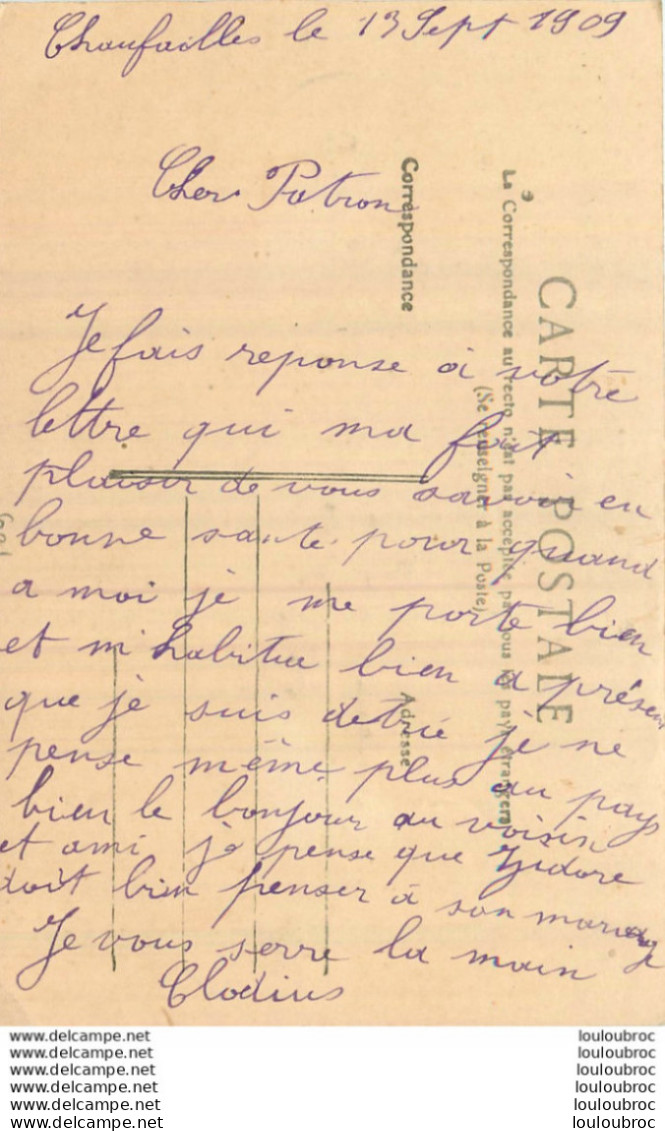 Chaufailles le 13 Sept 1909
Cher Patron
Je fais reponse à votre
lettre qui ma fait
plaisir de vous savoir en
bonne sante pour quand
a moi je me porte bien
et m'habitue bien a présent
que je suis je ne
pense même plus au pays
bien le bonjour au voisin
et ami je pense que Izidore
doit bien penser à son mariage
Je vous serre la main
Clodius
CARTE POSTALE
9
La Correspondance au recto n'est pas acceptée par tous les pays étrangers
(Se renseigner à la Poste)
Correspondance
Adresse
www.delcampe.net louloubroc
www.delcampe.net louloubroc
www.delcampe.net louloubroc
www.delcampe.net louloubroc
www.delcampe.net louloubroc
www.delcampe.net louloubroc